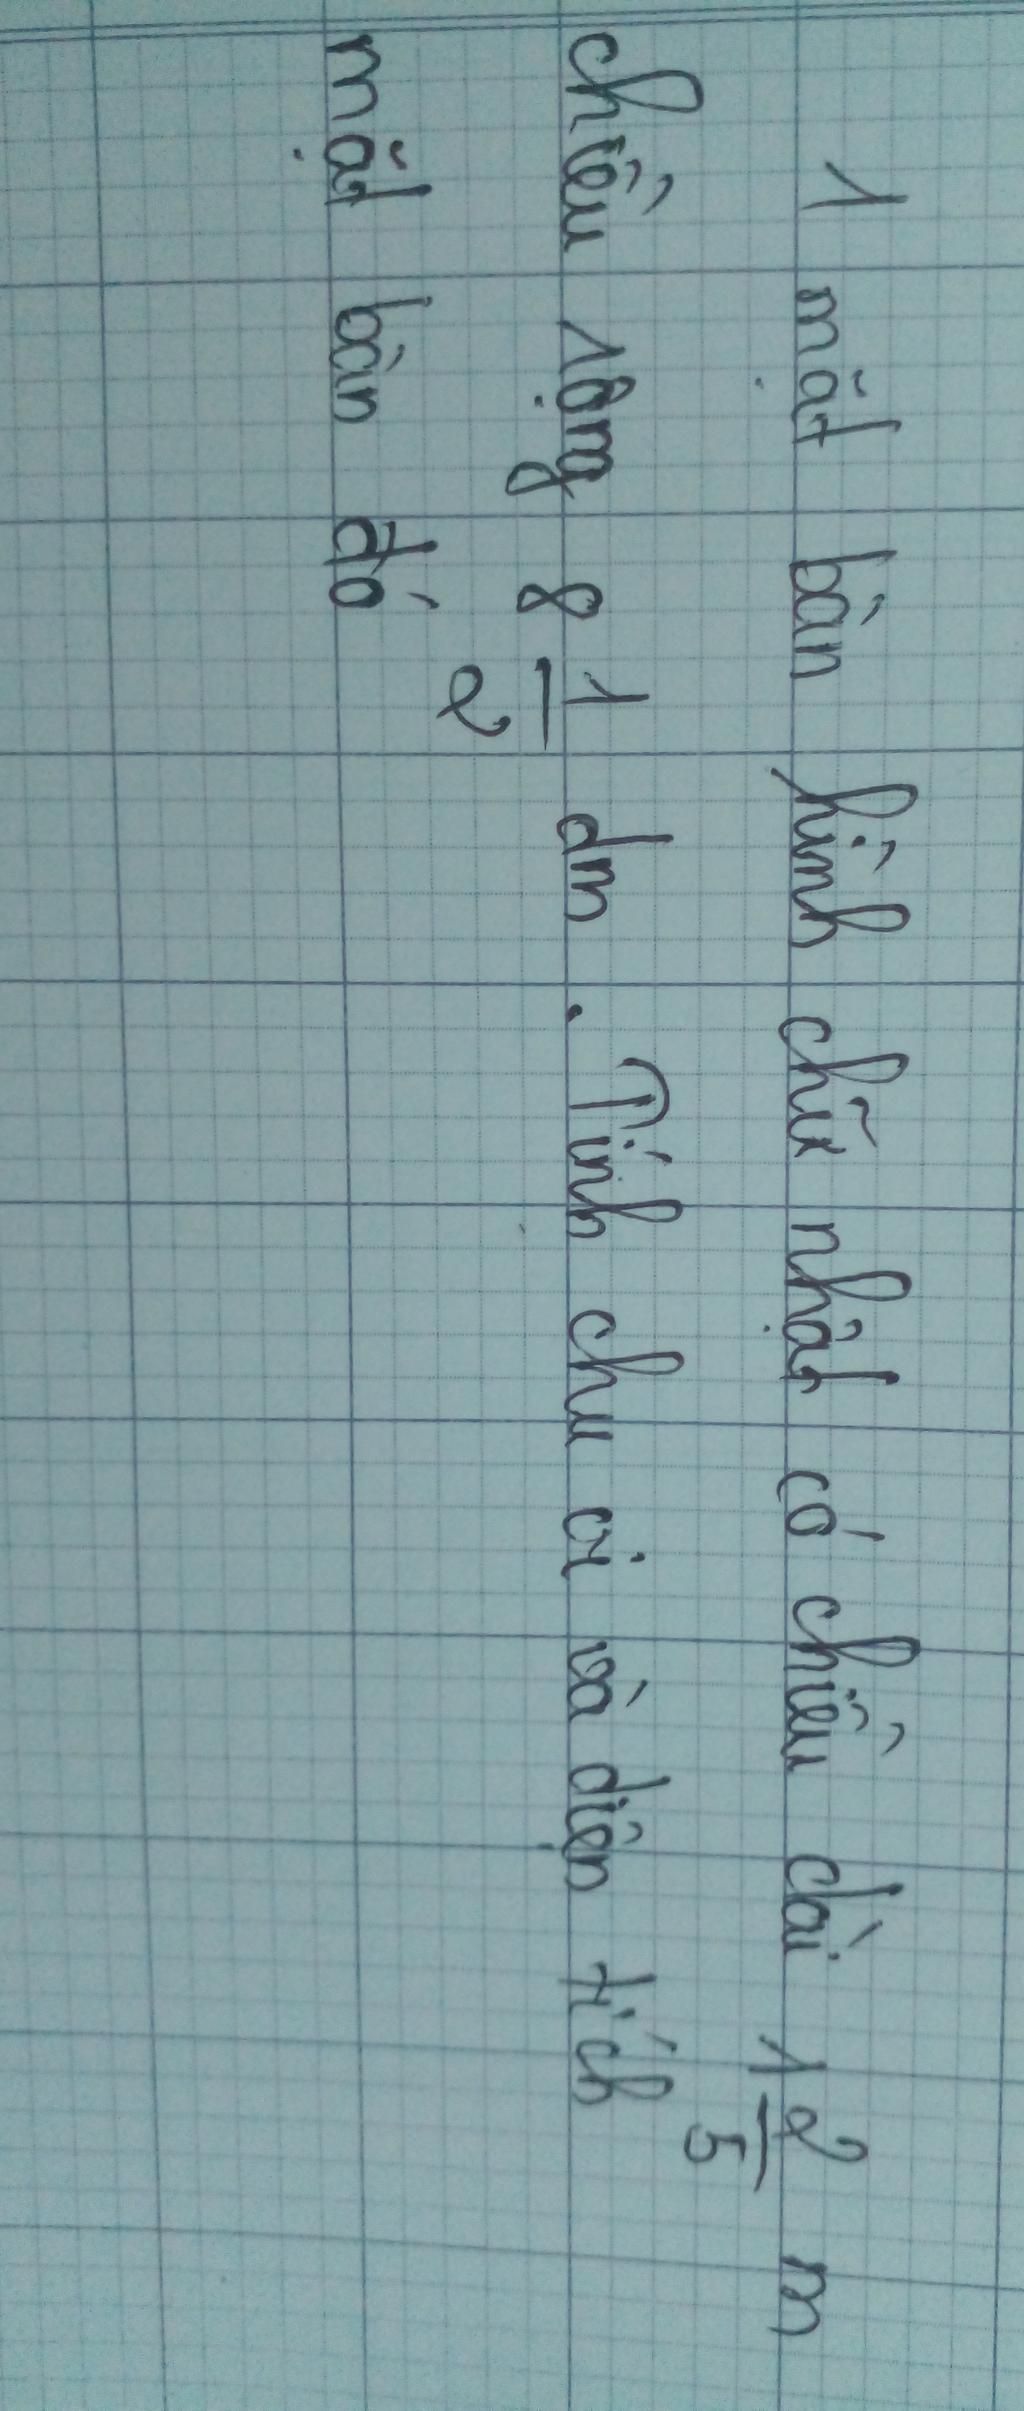 1 mặt bàn hình chữ nhật có chiều dài 1 2/5 m
chiều rộng 8 1/2 dm. Tính chu vi và diện tích
mặt bàn đó